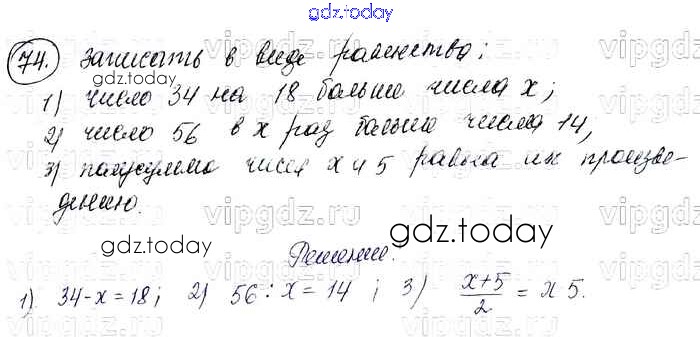 gdz.today
74. Записать в виде равенства:
1) число 34 на 18 больше числа x;
2) число 56 в x раз больше числа 14,
3) полусумма чисел x и 5 равна их произве-
дению.
Решение.
1). 34-x=18; 2) 56:x=14 ; 3) (x+5)/2 = x5.
vipgdz.ru
gdz.today
gdz.today
gdz.today